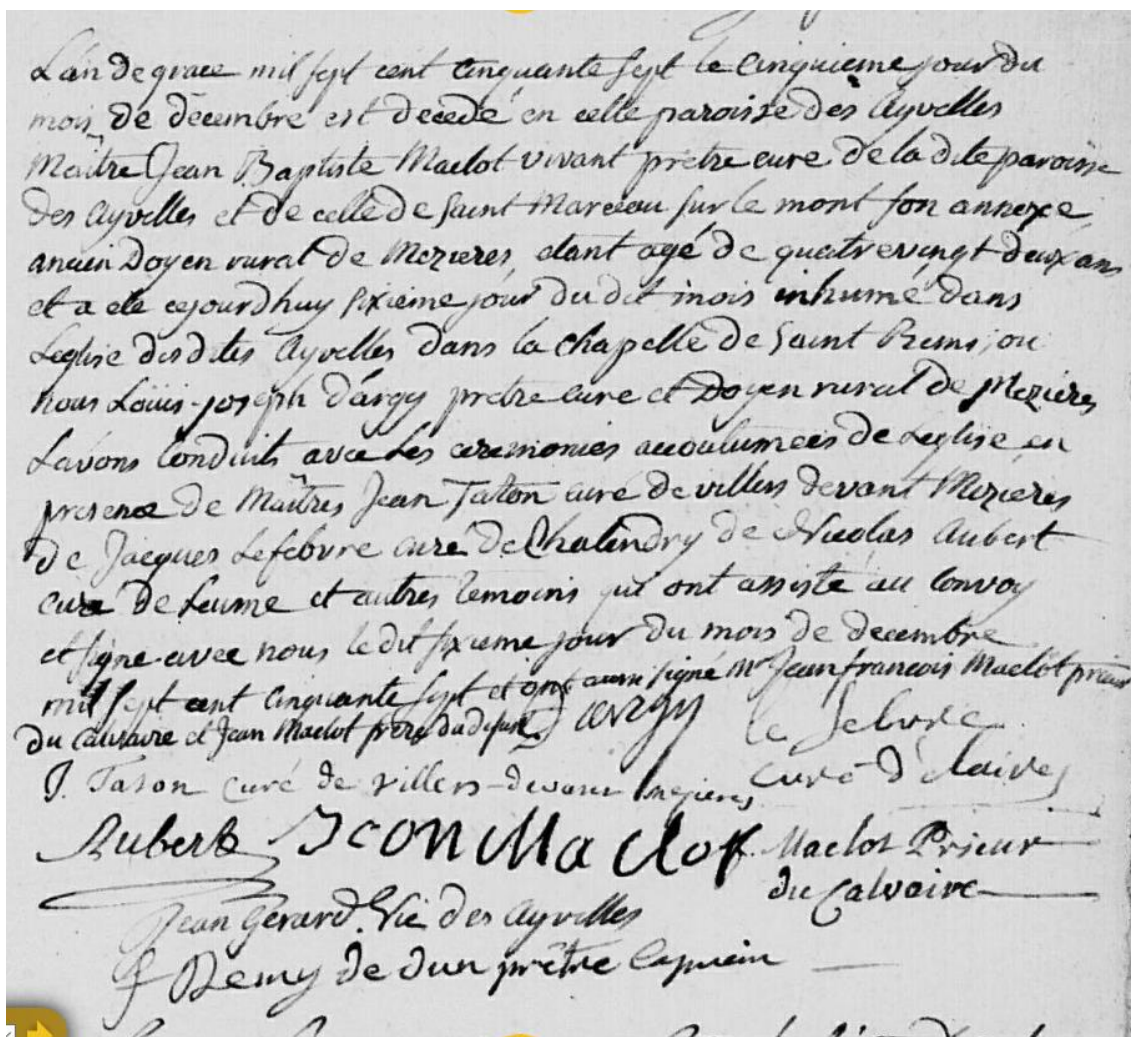 Lan de grace mil sept cent cinquante sept le cinquieme jour du
mois de decembre est decedé en cette paroisse des ayvelles
Maître Jean Baptiste Maclot vivant prêtre curé de la dite paroisse
des ayvelles et de celle de saint Marceau sur le mont son annexe
ancien Doyen rural de Mezieres, etant agé de quatre vingt deux ans
et a ete cejourdhuy sixieme jour du dit mois inhumé dans
Leglise desdites Ayvelles dans la chapelle de saint Remi, ou
nous Loüis-joseph d'argy pretre curé et Doyen rural de Mezières
Lavons conduits avec les ceremonies accoutumées de Leglise en
presence de Maîtres Jean Taton curé de villers devant Mezieres
de Jacques Lefebvre curé de Chalendry de Nicolas Aubert
curé de Lume et autres temoins qui ont assisté au convoy
et signe avec nous le dit sixieme jour du mois de decembre
mil sept cent cinquante sept et ont aussi signé Mr Jean francois Maclot prieur
du calvaire et Jean Maclot frere du defunt. d'argy le febvre
J. Taton curé de villers-devant mezieres curé d'
Aubert Jean Maclot f. Maclot Prieur
du Calvaire
Jean Gerard. Vic des ayvelles
f Remy de dun prêtre Capucin